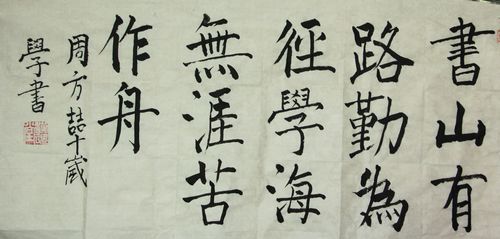 書山有
路勤為
徑學海
無涯苦
作舟
周方喆十歲
學書